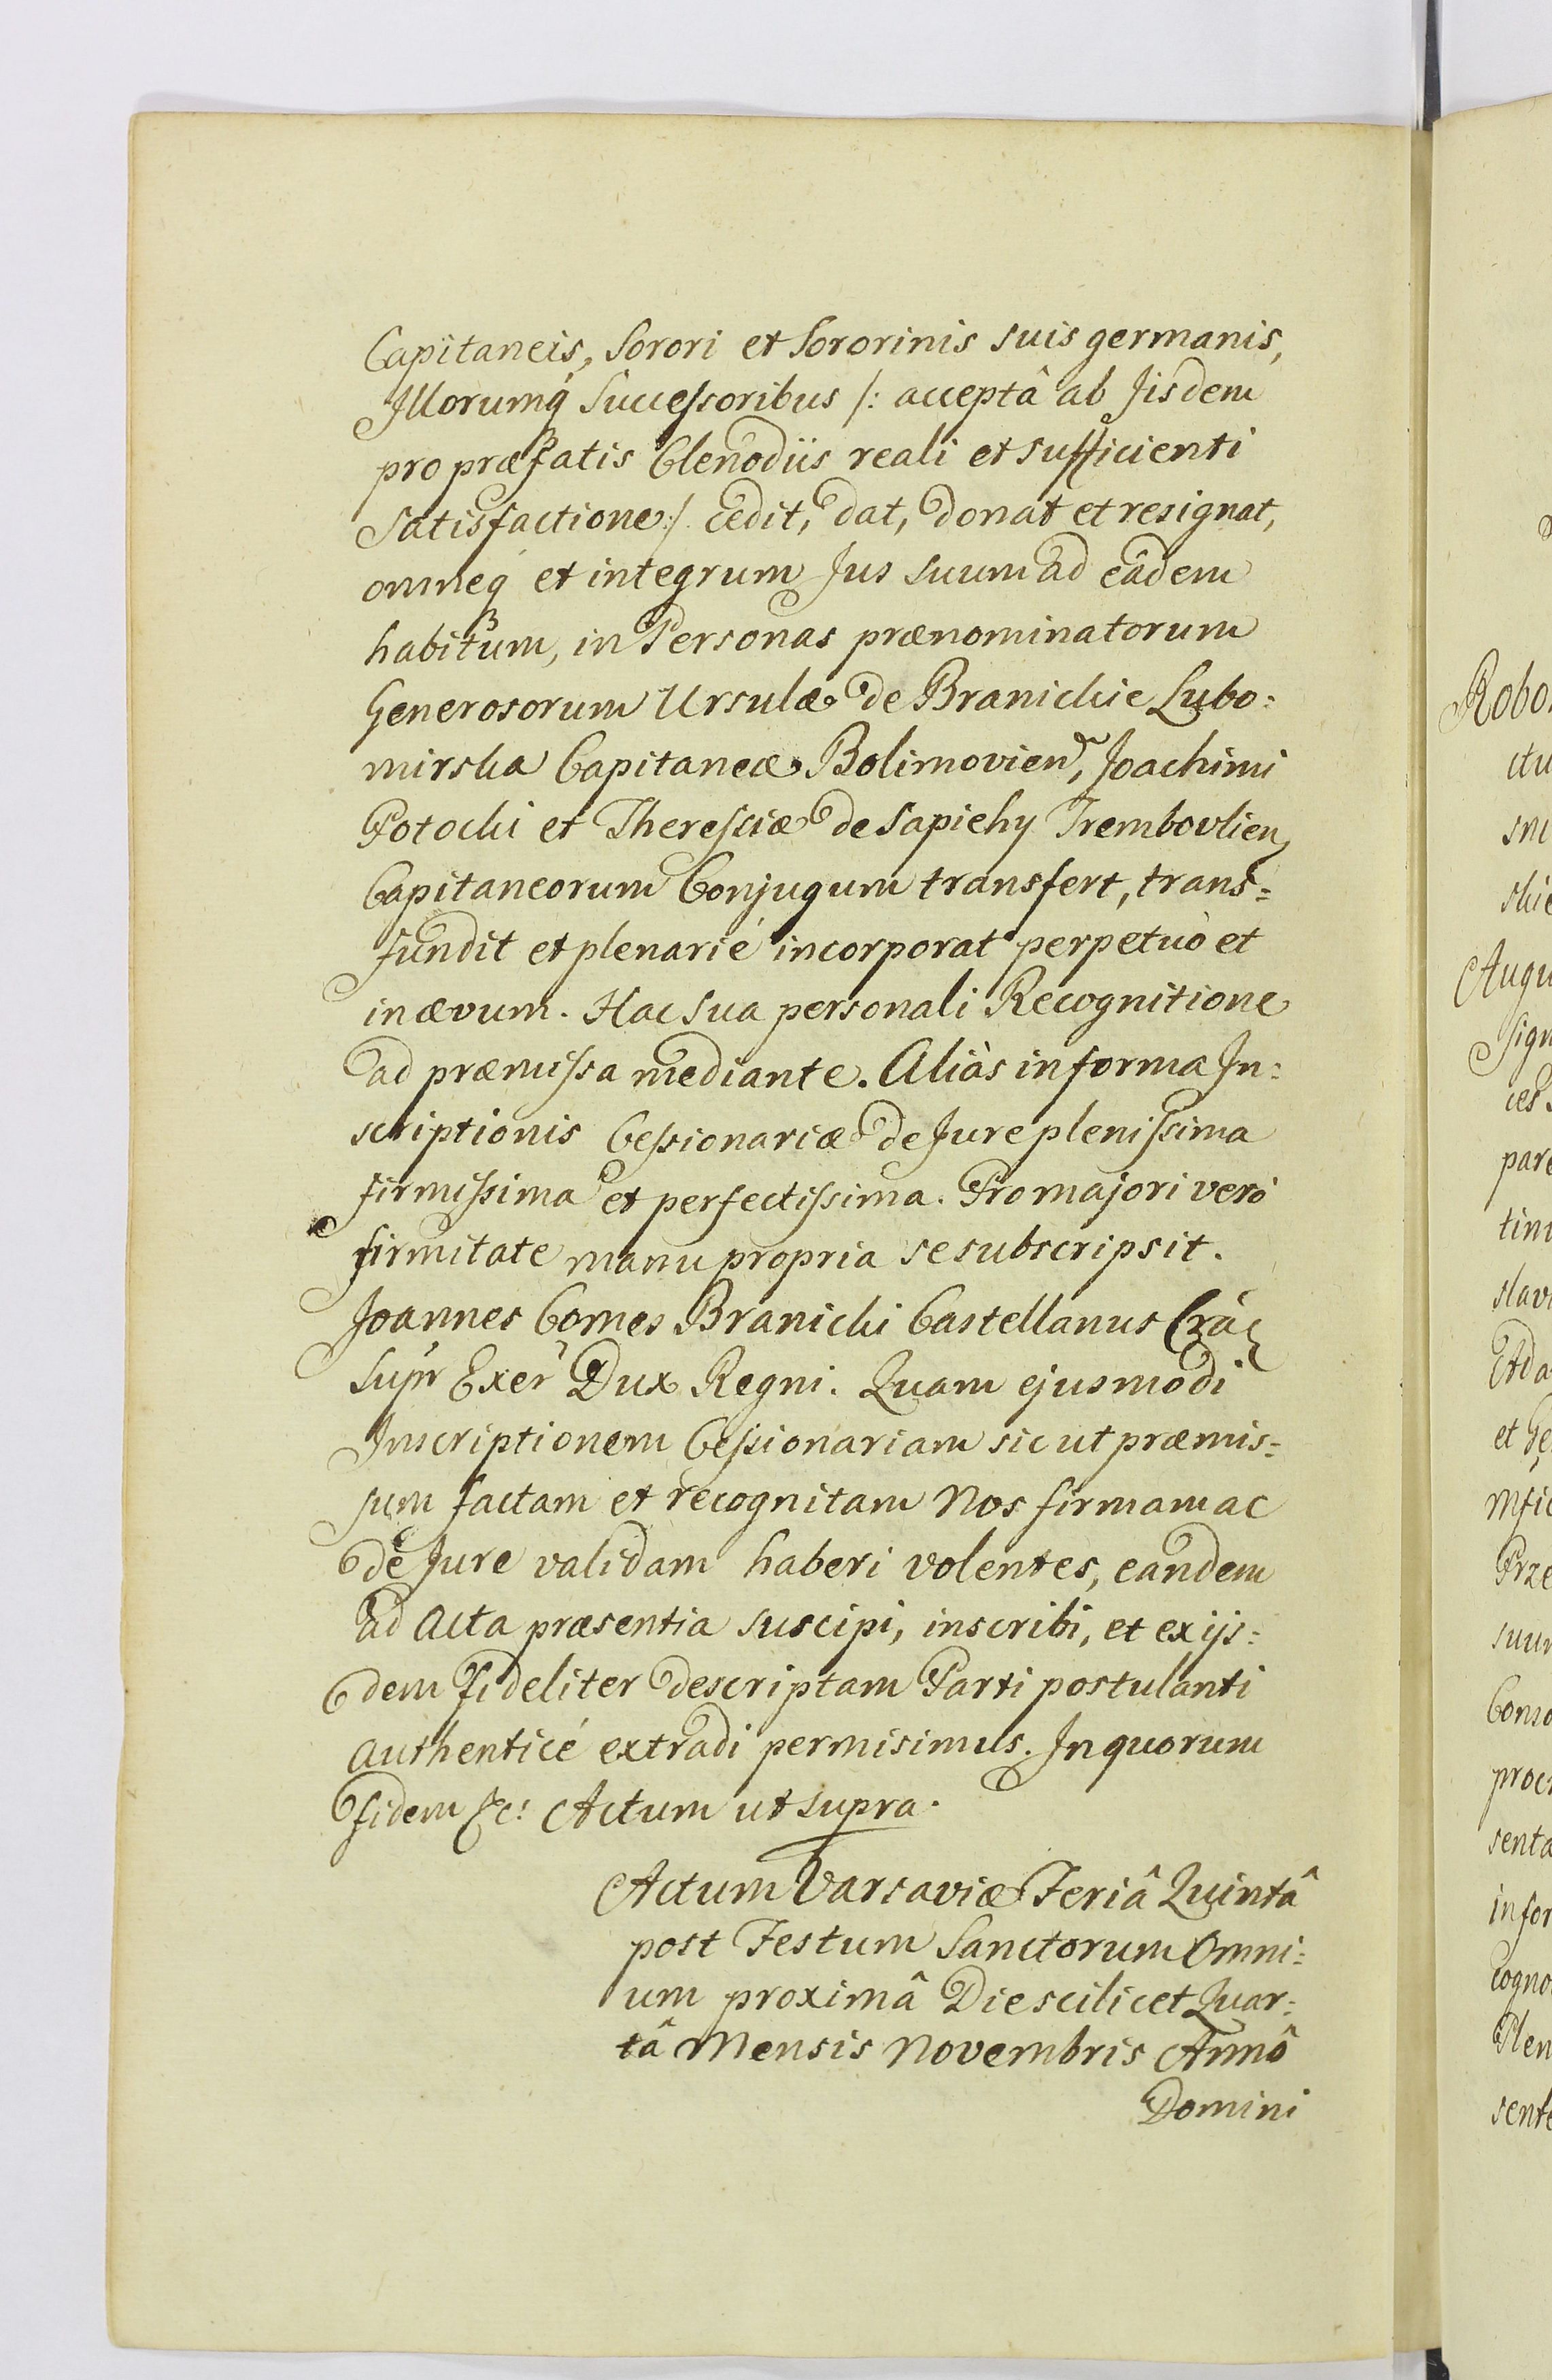 Capitaneis, Sorori et Sororinis suis germanis,
Illorumq́ Successoribus /: acceptâ ab Iisdem
pro præfatis Clenodiis reali et sufficienti
Satisfactione :/ cedit, dat, donat et resignat,
omneq́ et integrum Jus suum ad eadem
habitum, in Personas prænominatorum
Generosorum Ursulæ de Branickie Lubo=
mirska Capitaneæ Bolimovien, Joachimi
Potocki et Theressiæ de Sapiehy Trembovlien
Capitaneorum Conjugum transfert, trans=
fundit et plenarié incorporat perpetuò et
in ævum. Hac sua personali Recognitione
ad præmissa mediante. Aliàs in forma In=
scriptionis Cessionariæ de Jure plenissima
firmissima et perfectissima. Pro majori verò
firmitate manu propria se subscripsit.
Joannes Comes Branicki Castellanus Crac
Supr Exer Dux Regni. Quam ejusmodi
Inscriptionem Cessionariam sic ut præmis=
sum factam et recognitam Nos firmam ac
de Jure validam haberi volentes, eandem
ad Acta præsentia suscipi, inscribi, et ex ijs=
dem fideliter descriptam Parti postulanti
authenticé extradi permisimus. In quorum
fidem &c: Actum ut supra.
Actum Varsaviæ Feriâ Quintâ
post Festum Sanctorum Omni=
um proximâ Die scilicet Quar=
tâ Mensis Novembris Annô
Domini